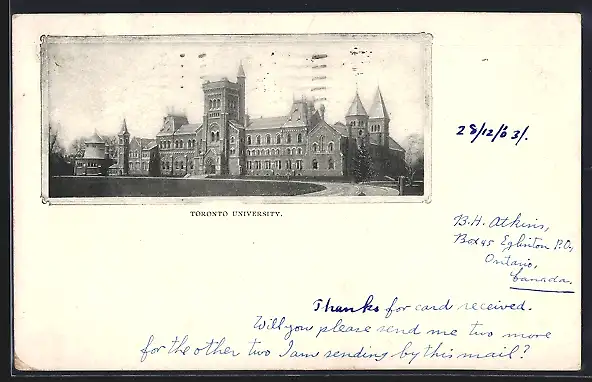 TORONTO UNIVERSITY.
28/12/03/.
B.H. Atkins,
Box 45 Eglinton P.O,
Ontario,
Canada.
Thanks for card received.
Will you please send me two more
for the other two I am sending by this mail?